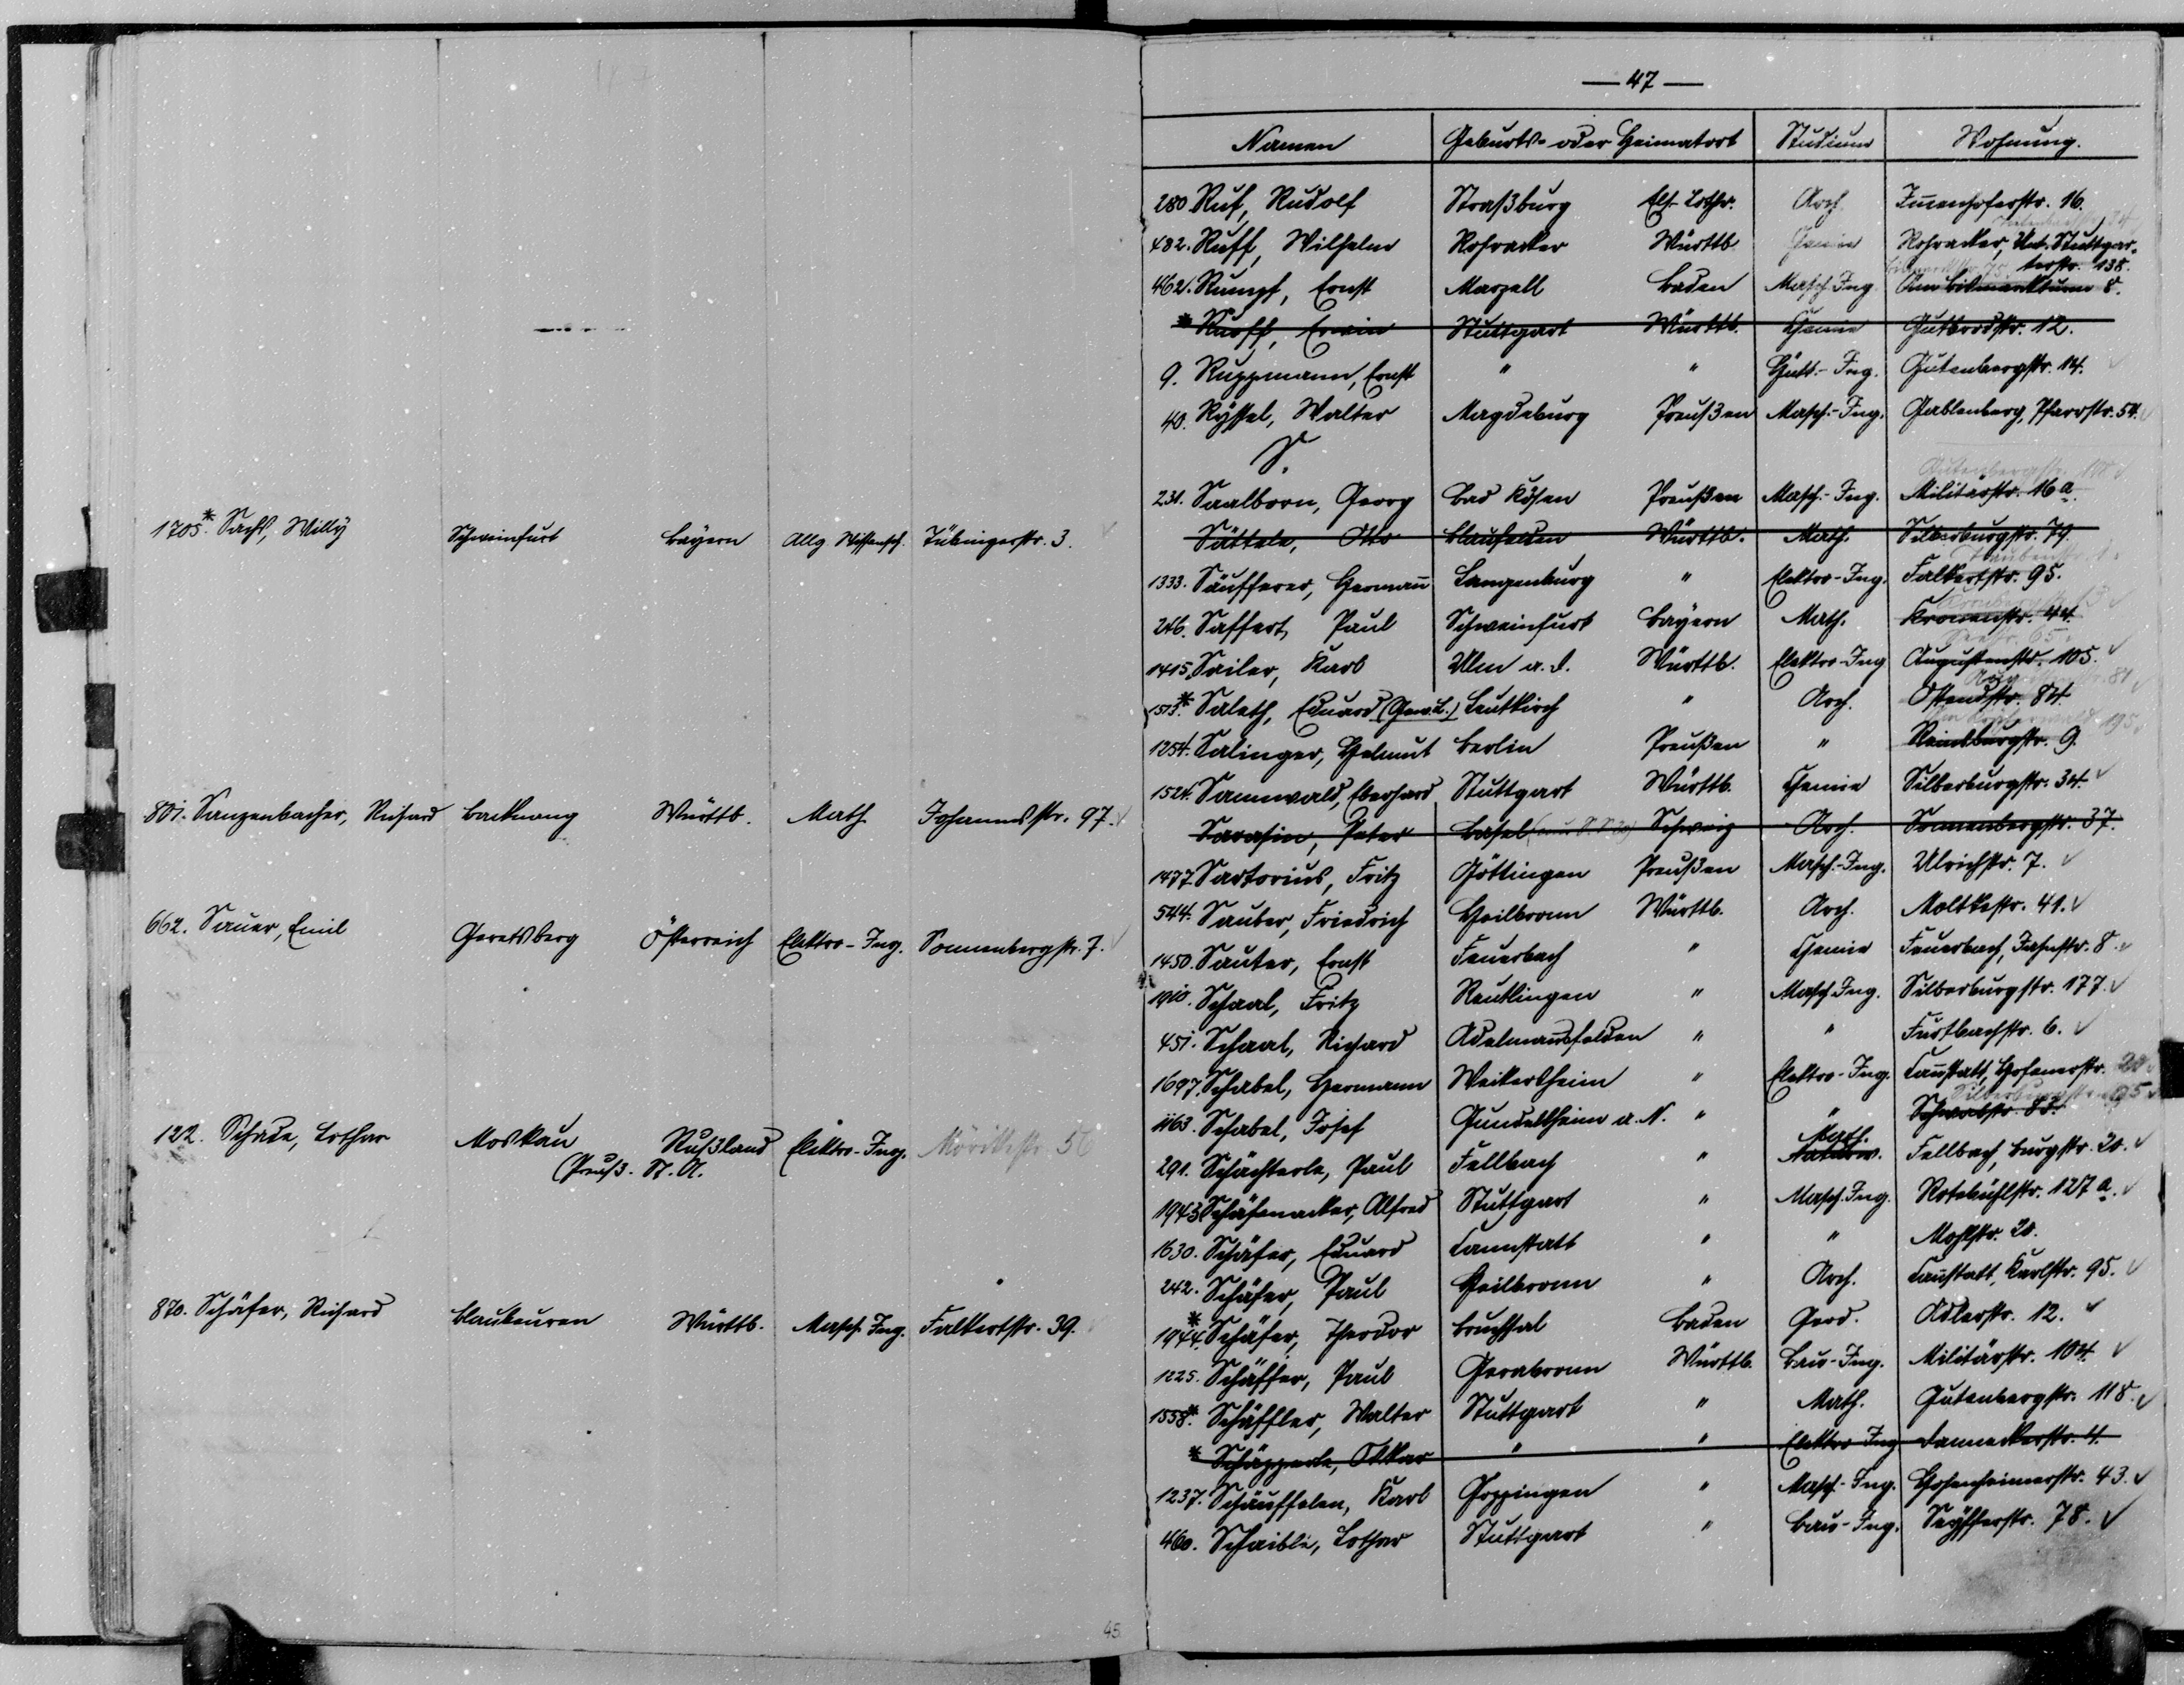 1705.* Sachs, Willy Schweinfurt Bayern Allg. Wissensch. Tübingerstr. 3.
801. Sanzenbacher, Richard Backnang Württb. Math. Johannesstr. 97.
662. Sauer, Emil Geretsberg Österreich Elektro-Ing. Sonnenbergstr. 7.
122. Schade, Lothar Moskau Rußland Elektro-Ing. Mörikestr. 56
(Preuß. St. A.
870. Schäfer, Richard Blaubeuren Württb. Masch. Ing. Falkertstr. 39.
45
— 47 —
Namen Geburts- oder Heimatort Studium Wohnung.
280 Ruf, Rudolf Straßburg Els. Lothr. Arch. Immenhoferstr. 16.
482. Ruff, Wilhelm Rohracker Württb. Chemie Rohracker, Unt. Stuttgar-
terstr. 138.
462. Rumpf, Ernst Marzell Baden Masch. Ing. Am Bismarckturm 8.
* Ruoff, Erwin Stuttgart Württb. Chemie Gutbrodstr. 12.
9. Ruppmann, Ernst " " Hütt.-Ing. Gutenbergstr. 14.
40. Ryssel, Walter Magdeburg Preußen Masch.-Ing. Gablenberg, Pfarrstr. 54.
S.
Gutenbergstr. 108
231. Saalborn, Georg Bad Kösen Preußen Masch.-Ing. Militärstr. 16a.
Sättele, Otto Blaufelden Württb. Math. Silberburgstr. 79.
1333. Säufferer, Hermann Langenburg " Elektro-Ing. Falkertstr. 95.
246. Saffert, Paul Schweinfurt Bayern Math. Kronenstr. 44.
1415. Sailer, Karl Ulm a. D. Württb. Elektro-Ing Augustenstr. 105.
1513.* Salath, Eduard (Gew. L.) Leutkirch " Arch. Ostendstr. 84.
1254. Salinger, Helmut Berlin Preußen " Reinsburgstr. 9.
1524. Sammwald, Eberhard Stuttgart Württb. Chemie Silberburgstr. 34.
Sarasin, Peter Basel Schweiz Arch. Sonnenbergstr. 37.
1477. Sartorius, Fritz Göttingen Preußen Masch.-Ing. Ulrichstr. 7.
544. Sauber, Friedrich Heilbronn Württb. Arch. Moltkestr. 41.
1450. Sauter, Ernst Feuerbach " Chemie Feuerbach, Jahnstr. 8.
Schaal, Fritz Reutlingen " Masch. Ing. Silberburgstr. 177.
451. Schaal, Richard Adelmannsfelden " " Furtbachstr. 6.
1697. Schabel, Hermann Weikersheim " Elektro-Ing. Cannstatt, Hofenerstr. 20
1163. Schabel, Josef Gundelsheim a. N. " " Schwabstr.
Math.
291. Schächterle, Paul Fellbach " Naturw. Fellbach, Burgstr. 20.
1943 Schäfenacker, Alfred Stuttgart " Masch. Ing. Rotebühlstr. 127a.
1630. Schäfer, Eduard Cannstatt " " Mohlstr. 20.
242. Schäfer, Paul Heilbronn " Arch. Cannstatt, Karlstr. 95.
1944.* Schäfer, Theodor Bruchsal Baden Geod. Adlerstr. 12.
1225. Schäffer, Paul Gerabronn Württb. Bau-Ing. Militärstr. 104.
1558.* Schäffler, Walter Stuttgart " Math. Gutenbergstr. 118.
* Schäpperle, Otkar " " Elektro Ing Danneckerstr. 4.
1237. Schäuffelen, Karl Göppingen " Masch.-Ing. Hohenheimerstr. 43.
460. Schaible, Lothar Stuttgart " Bau-Ing. Seyfferstr. 78.